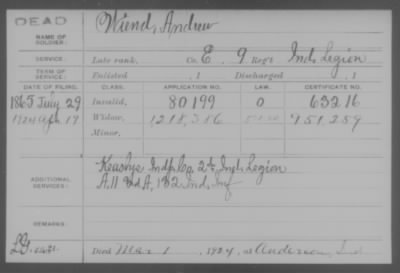 DEAD
NAME OF SOLDIER: Wiend, Andrew
SERVICE: Late rank, Co. E. 9 Reg't Ind. Legion
TERM OF SERVICE: Enlisted , 1 Discharged , 1
DATE OF FILING. CLASS. APPLICATION NO. LAW. CERTIFICATE NO.
1865 July 29 Invalid, 80199 O 63216
1924 Apr 19 Widow, 1218,316 951,259
Minor,
ADDITIONAL SERVICES: Indp. Co. 2d, Ind. Legion
A. 11 & A, 132 Ind. Inf
REMARKS:
Died Mar 1, 1924, at Anderson, Ind